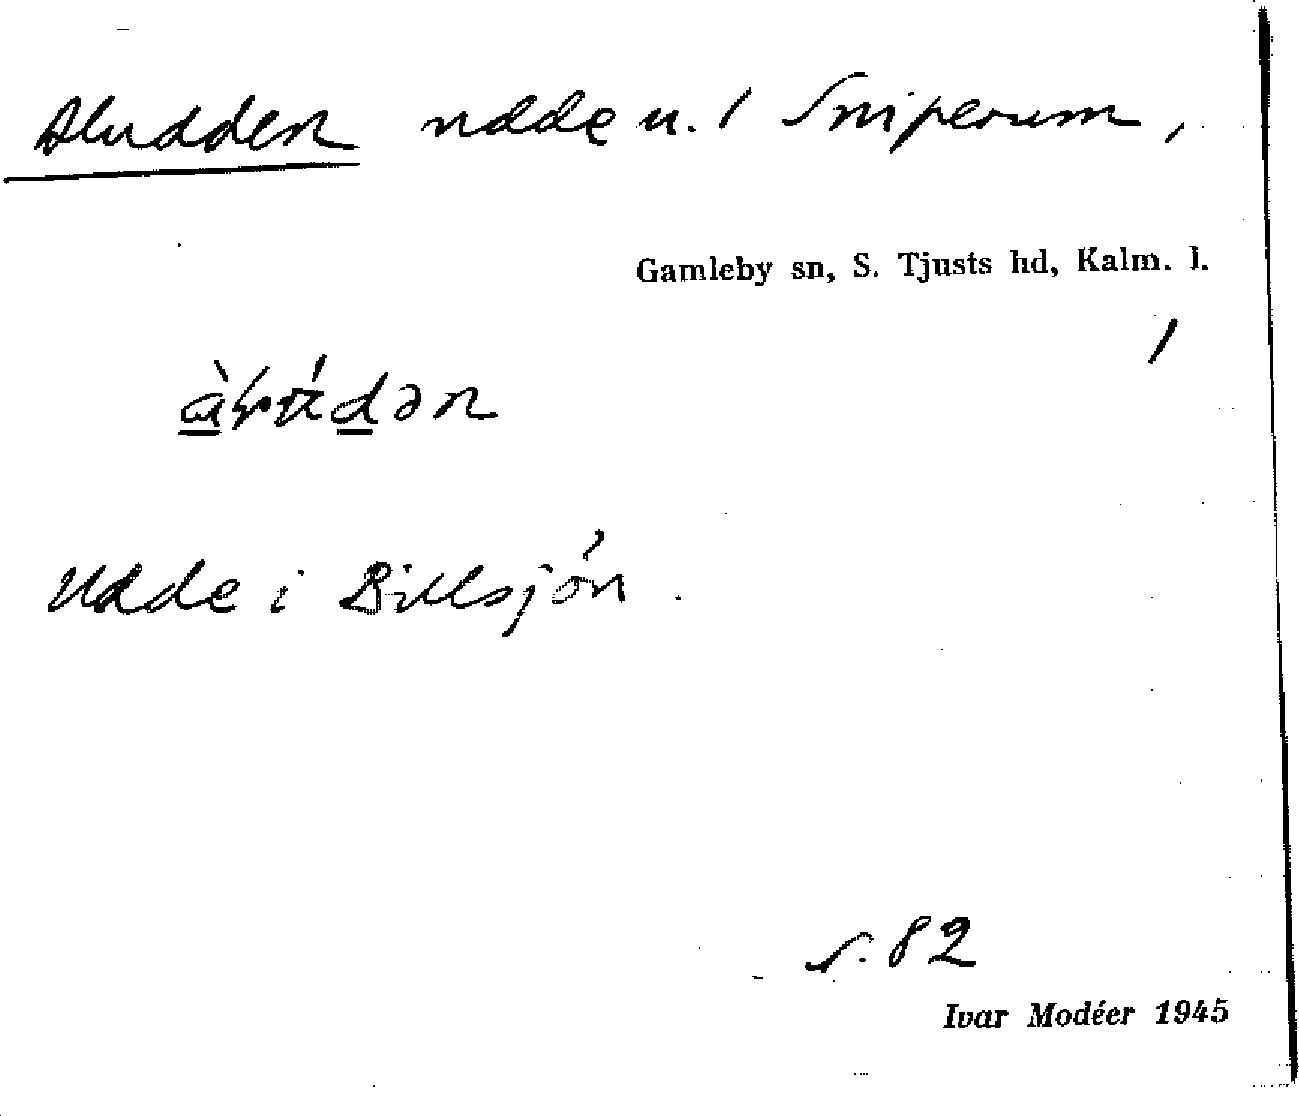 Aludden udde u. / Sniperum,
Gamleby sn, S. Tjusts hd, Kalm. l.
Udde i Billsjön.
s. 82
Ivar Modéer 1945